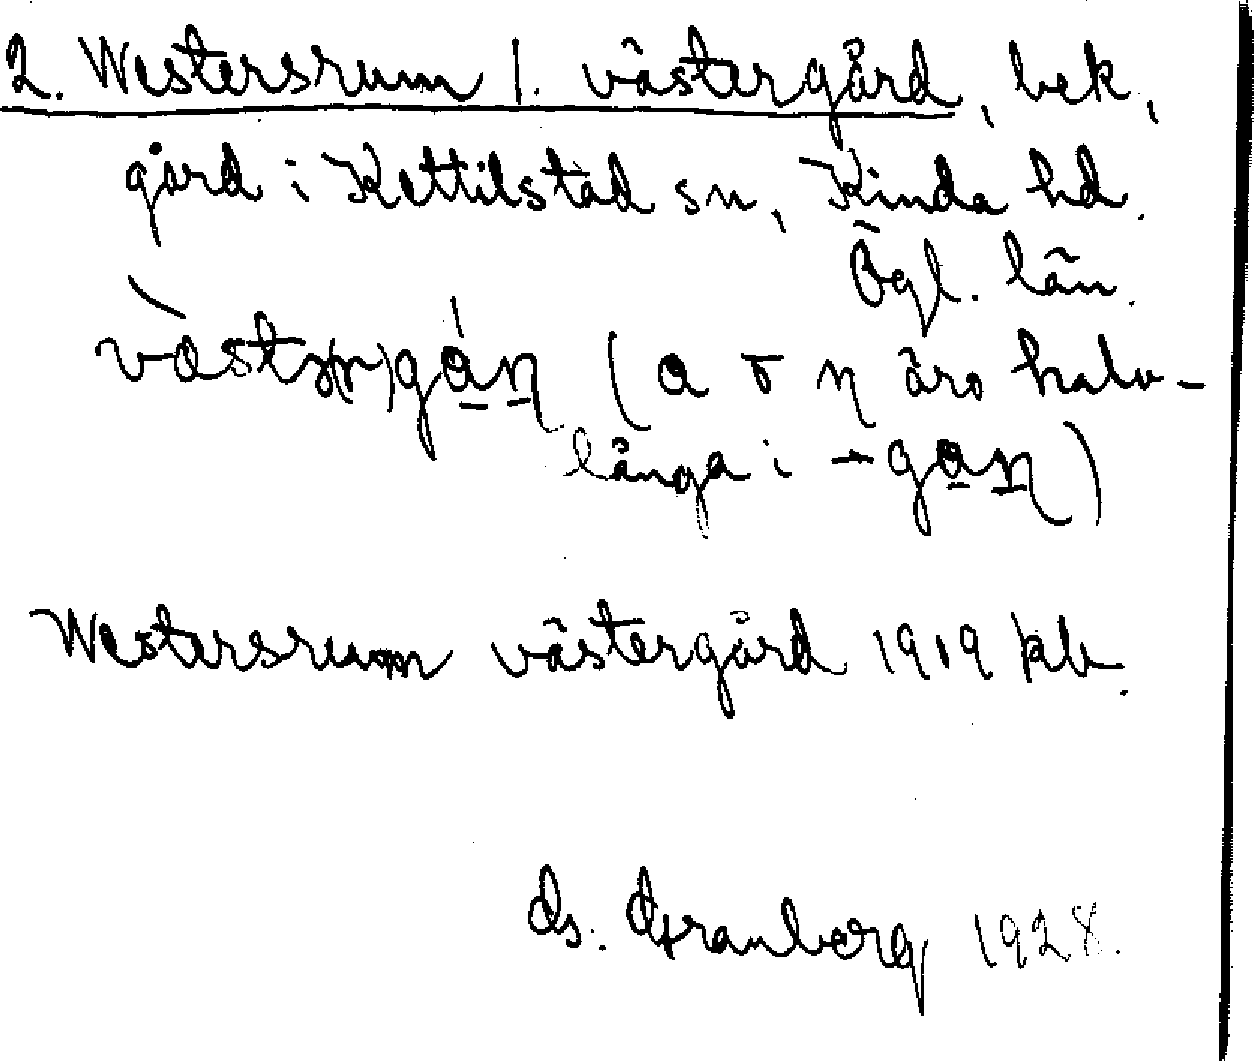 2. Westersrum l. västergård, bek,
gård i Kettilstad sn, Kinda hd.
Ögl. län.
(a o n äro halv-
långa i -gan)
Westersrum västergård 1919 kb.
1928.